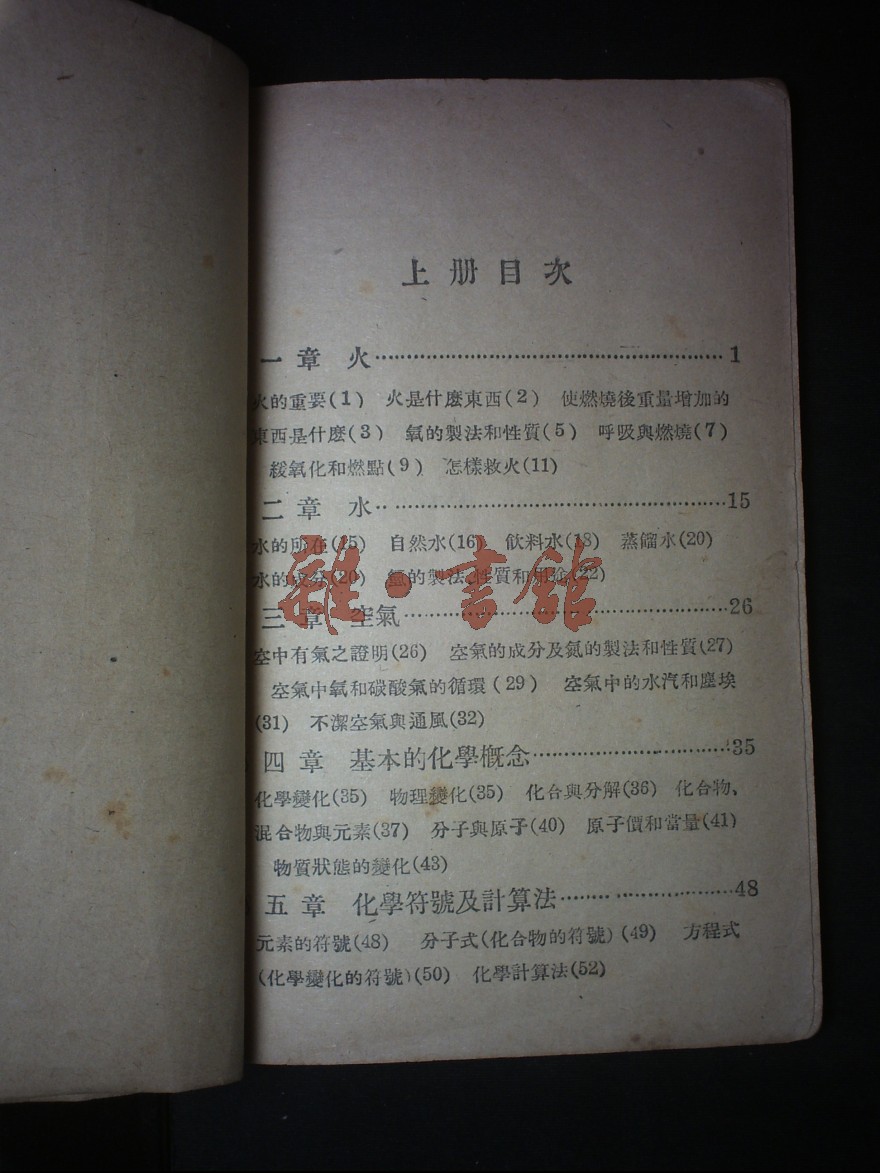 上册目次
一章 火……1
火的重要(1) 火是什麽東西(2) 使燃燒後重量增加的
東西是什麽(3) 氧的製法和性質(5) 呼吸與燃燒(7)
緩氧化和燃點(9) 怎樣救火(11)
二章 水……15
水的所在(15) 自然水(16) 飲料水(18) 蒸餾水(20)
水的成分(20) 氫的製法,性質和用途(22)
三章 空氣……26
空中有氣之證明(26) 空氣的成分及氮的製法和性質(27)
空氣中氧和碳酸氣的循環(29) 空氣中的水汽和塵埃
(31) 不潔空氣與通風(32)
四章 基本的化學概念……35
化學變化(35) 物理變化(35) 化合與分解(36) 化合物,
混合物與元素(37) 分子與原子(40) 原子價和當量(41)
物質狀態的變化(43)
五章 化學符號及計算法……48
元素的符號(48) 分子式(化合物的符號)(49) 方程式
(化學變化的符號)(50) 化學計算法(52)
雜·書館